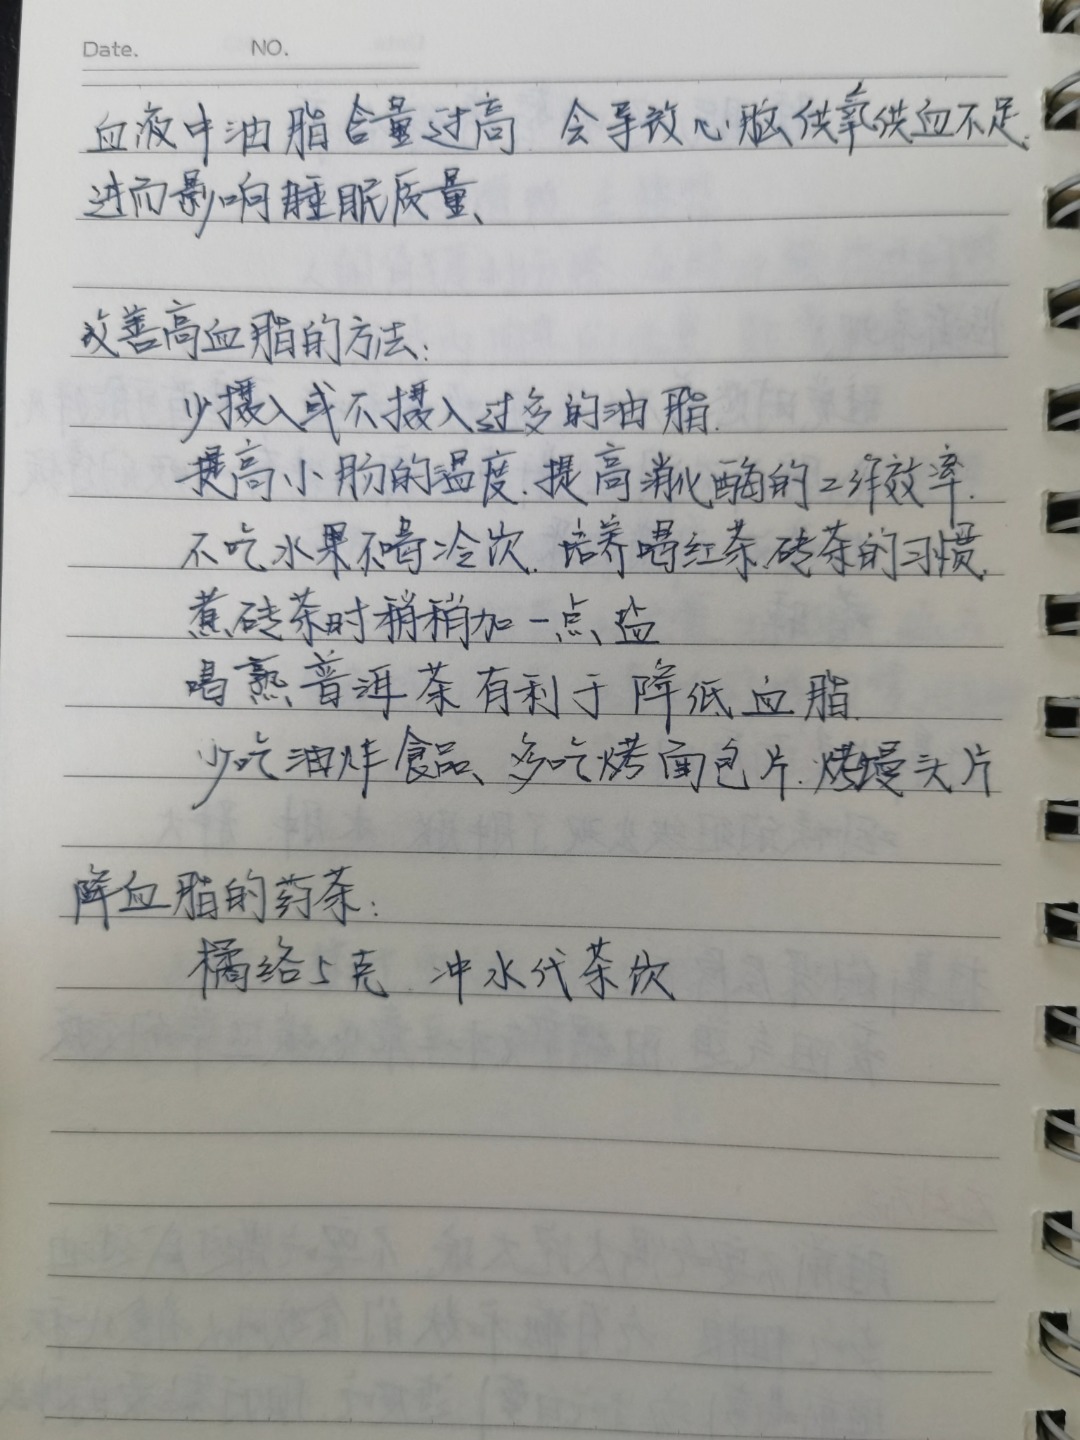 Date. NO.
血液中油脂含量过高 会导致心脑供氧供血不足.
进而影响睡眠质量、
改善高血脂的方法:
少摄入或不摄入过多的油脂.
提高小肠的温度.提高消化酶的工作效率.
不吃水果不喝冷饮.培养喝红茶.砖茶的习惯.
煮砖茶时稍稍加一点盐
喝熟普洱茶有利于降低血脂.
少吃油炸食品、多吃烤面包片.烤馒头片
降血脂的药茶:
橘络5克 冲水代茶饮